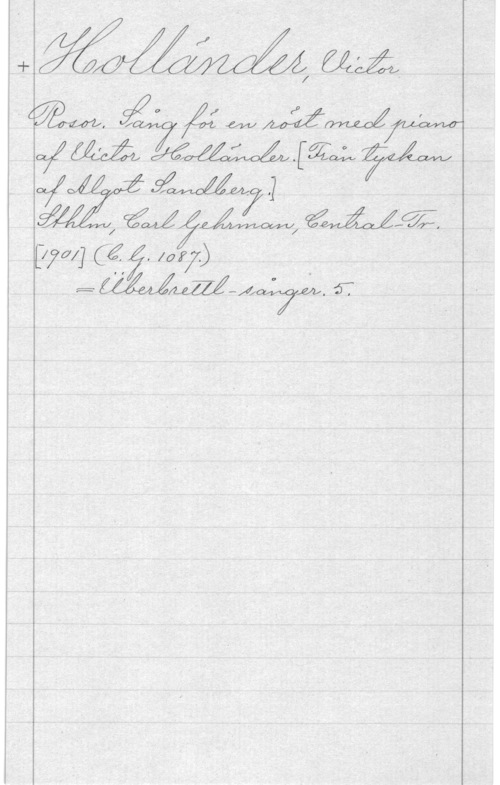 + Holländer, Victor
Rosor. Sång för en röst med piano
af Victor Holländer. [Från tyskan
af Algot Sandberg.]
Sthlm, Carl Gehrman, Central-Tr.
[1901] (C. G. 1087.)
= Überbrettl-sånger. 5.